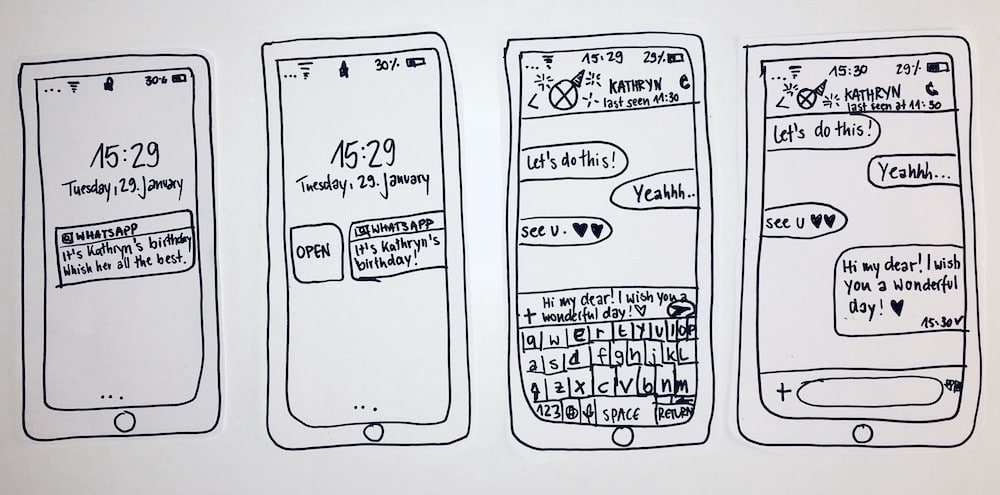 30%
15:29
Tuesday, 29. January
WHATSAPP
It's Kathryn's birthday
Whish her all the best.
...
30%
15:29
Tuesday, 29. January
OPEN
WHATSAPP
It's Kathryn's
birthday!
...
15:29 29%
< KATHRYN
last seen 11:30
Let's do this!
Yeahhh..
see u. ♥♥
Hi my dear! I wish you a
+ wonderful day! ♡
q w e r t y u i o p
a s d f g h j k l
z x c v b n m
123 SPACE RETURN
15:30 29%
< KATHRYN
last seen at 11:30
Let's do this!
Yeahhh...
see u ♥♥
Hi my dear! I wish
you a wonderful
day! ♥
15:30 ✓
+